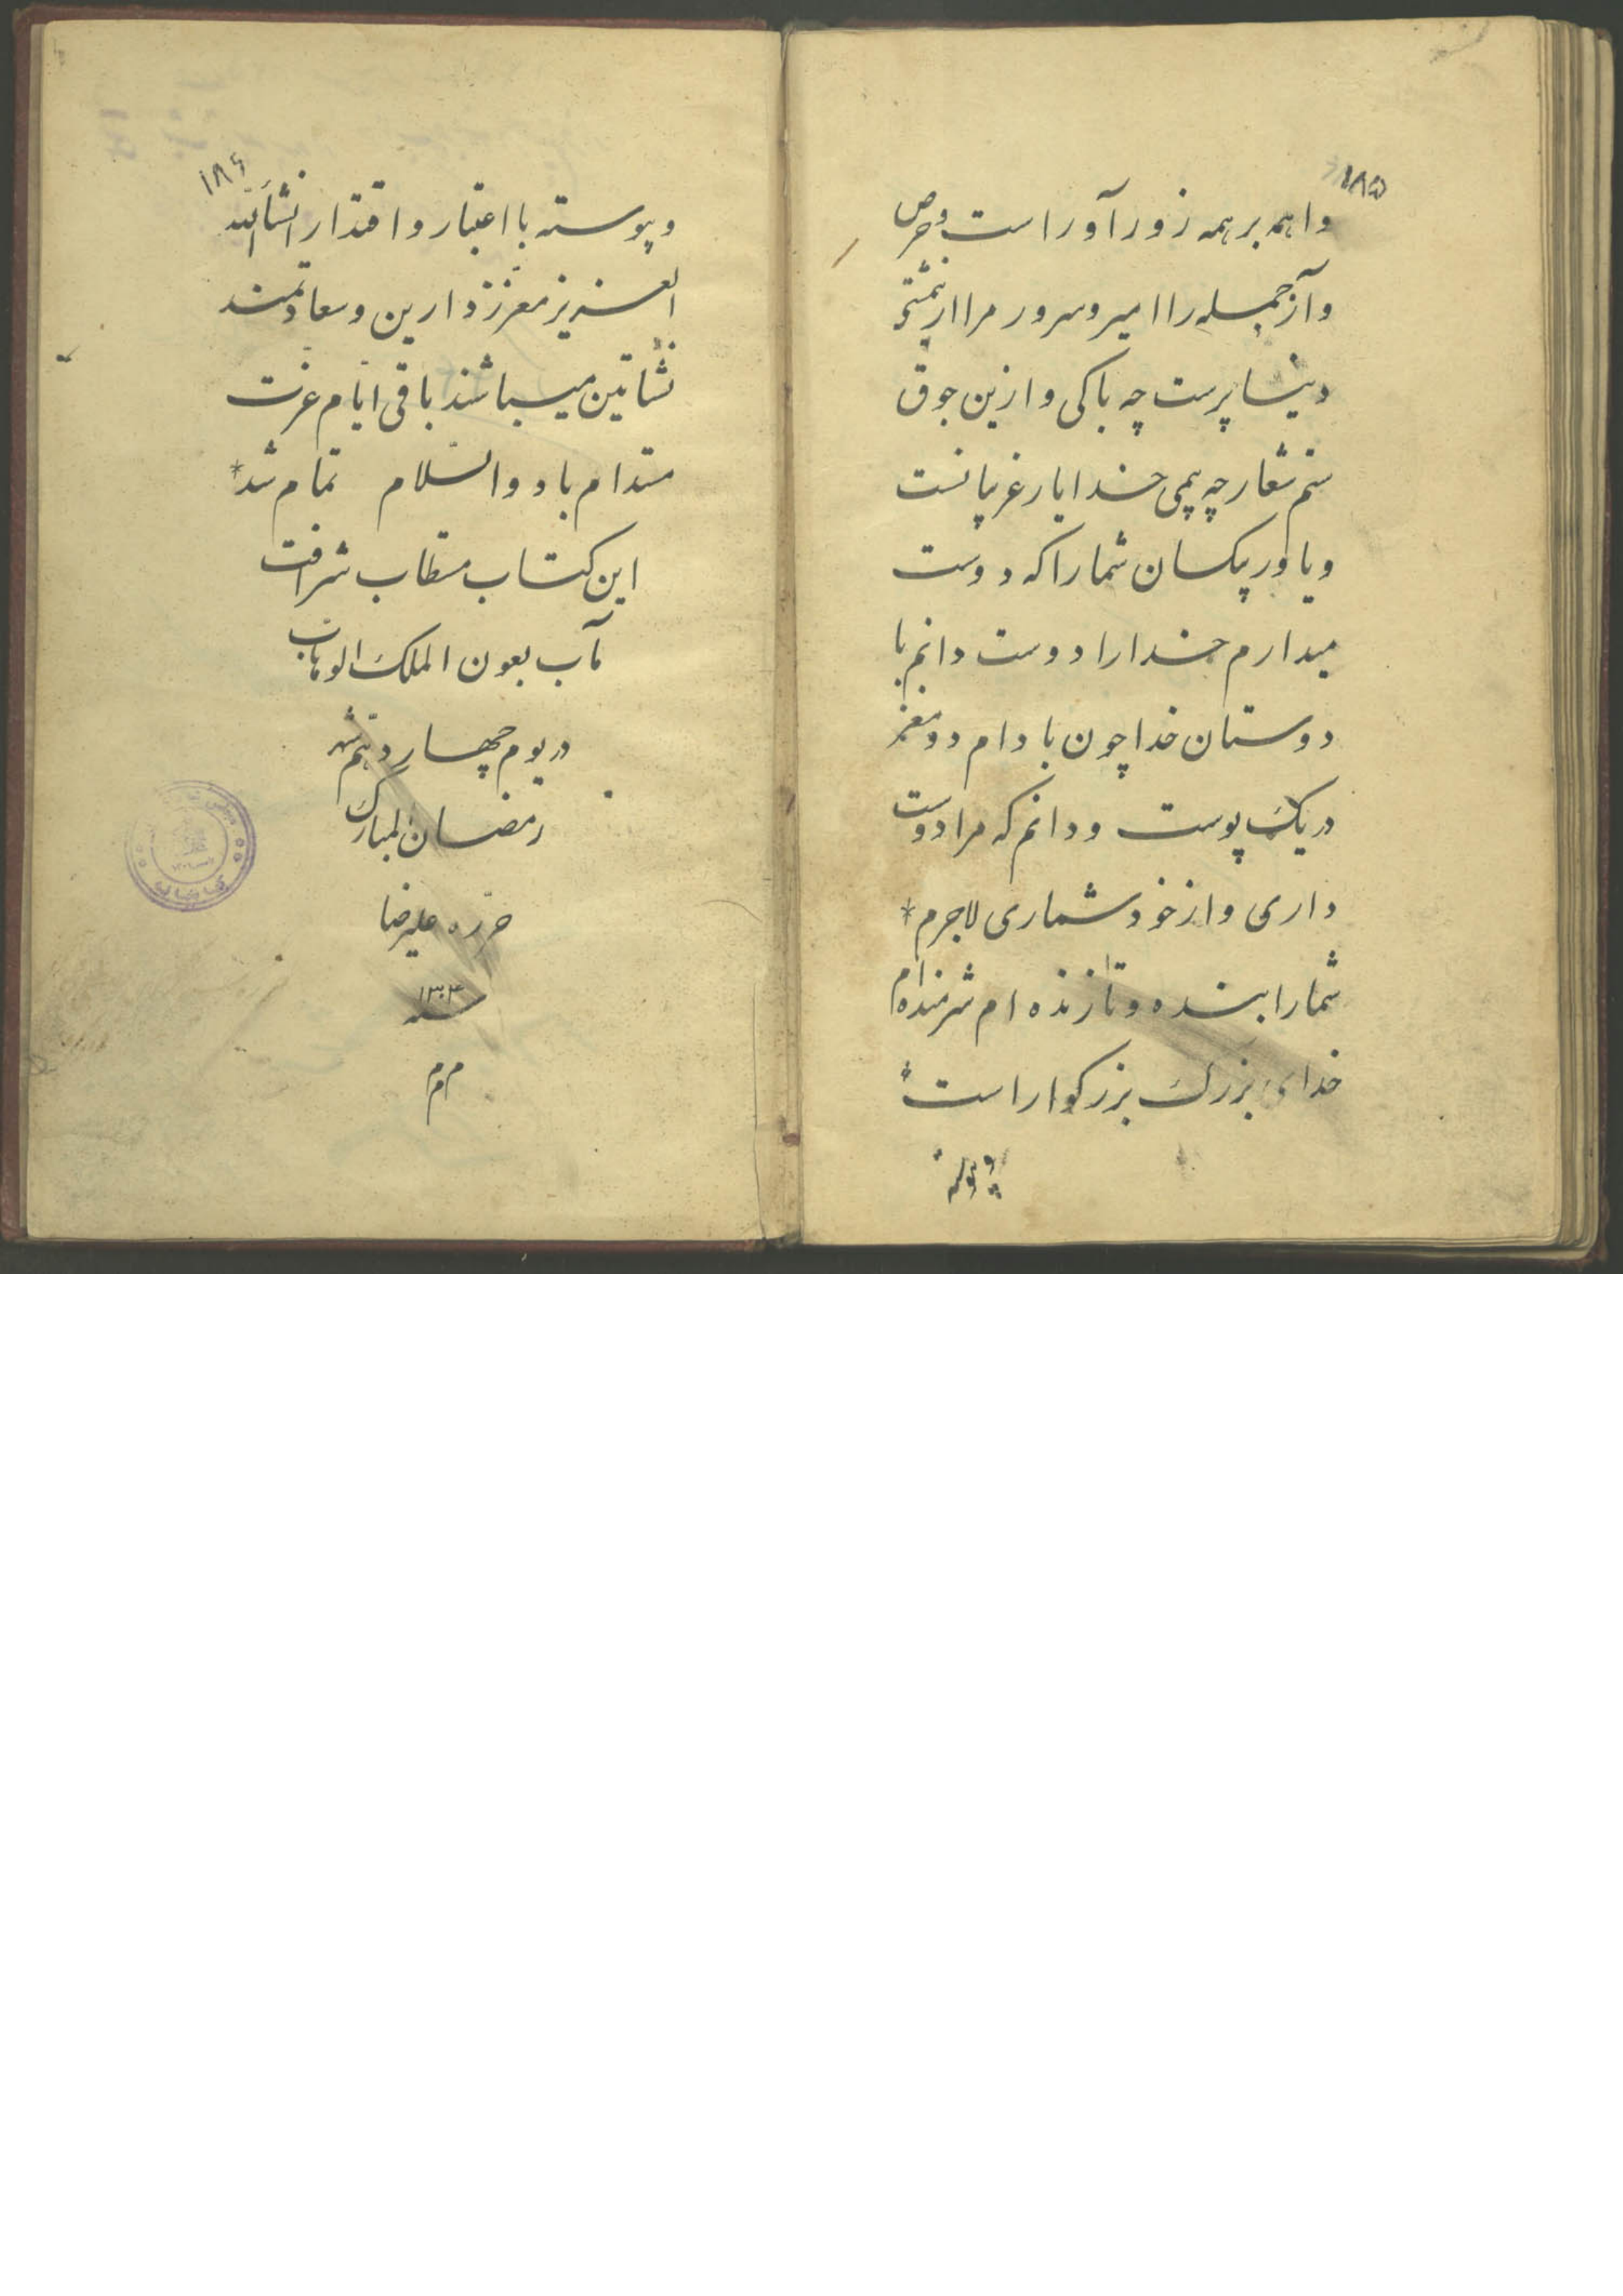 ۱۸۵
واهمه بر همه زور آور است و حرص
و آز جمله را امیر و سرور مرا ازین مشتی
دنیا پرست چه باکی و ازین جوق
ستم شعار چه بیمی خدا یار غریبانست
و یاور بیکسان شما را که دوست
میدارم خدا را دوست دانم با
دوستان خدا چون بادام دو مغز
در یک پوست و دانم که مرا دوست
داری و از خود شماری لاجرم *
شما را بنده و تا زنده ام شرمنده ام
خدای بزرگ بزرگوار است
۱۸۶
و پیوسته با اعتبار و اقتدار انشاءالله
العزیز معزز دارین و سعادتمند
نشأتین میباشند باقی ایام عزت
مستدام باد والسلام تمام شد *
این کتاب مستطاب شرافت
مآب بعون الملک الوهاب
در یوم چهاردهم شهر
رمضان المبارک
حرره علیرضا
سنه ۱۳۰۳
م م م